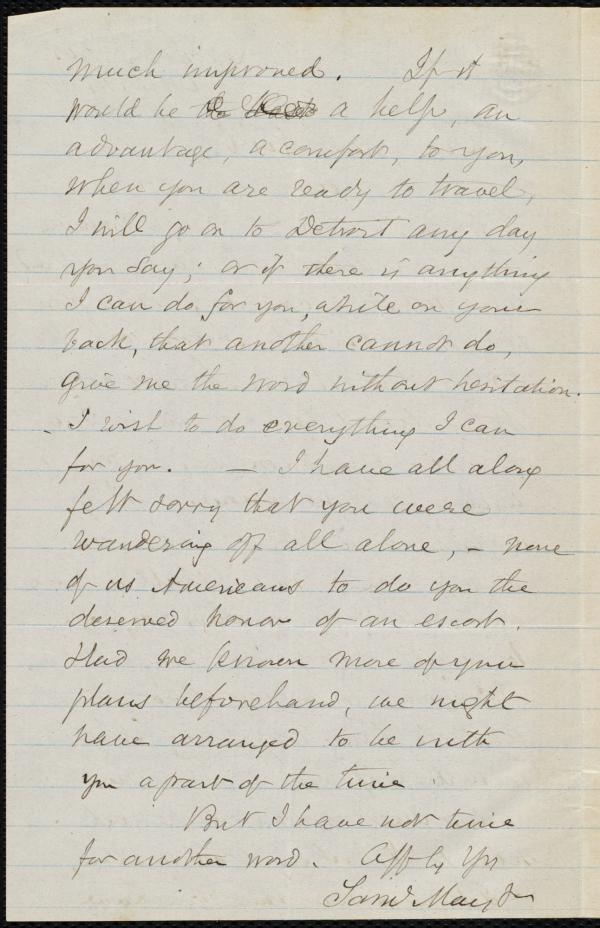 much improved. If it
would be the least a help, an
advantage, a comfort, to you,
when you are ready to travel,
I will go on to Detroit any day
you say; or if there is anything
I can do for you, while on your
back, that another cannot do,
give me the word without hesitation.
- I wish to do everything I can
for you. — I have all along
felt sorry that you were
wandering off all alone, - none
of us Americans to do you the
deserved honor of an escort.
Had we known more of your
plans beforehand, we might
have arranged to be with
you a part of the time.
But I have not time
for another word. Affly Yrs
Saml May Jr